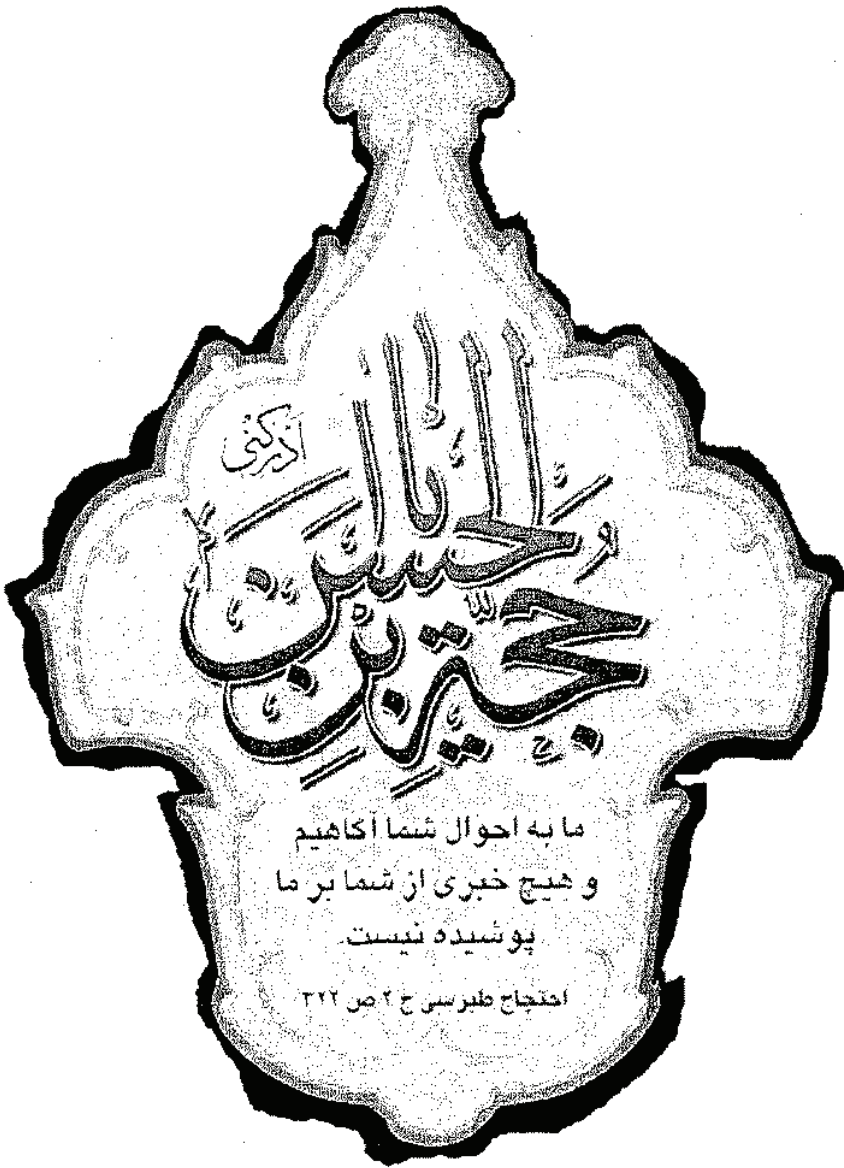 یا حجة بن الحسن
أدرکنی
ما به احوال شما آگاهیم
و هیچ خبری از شما بر ما
پوشیده نیست
احتجاج طبرسی ج ۲ ص ۳۲۲